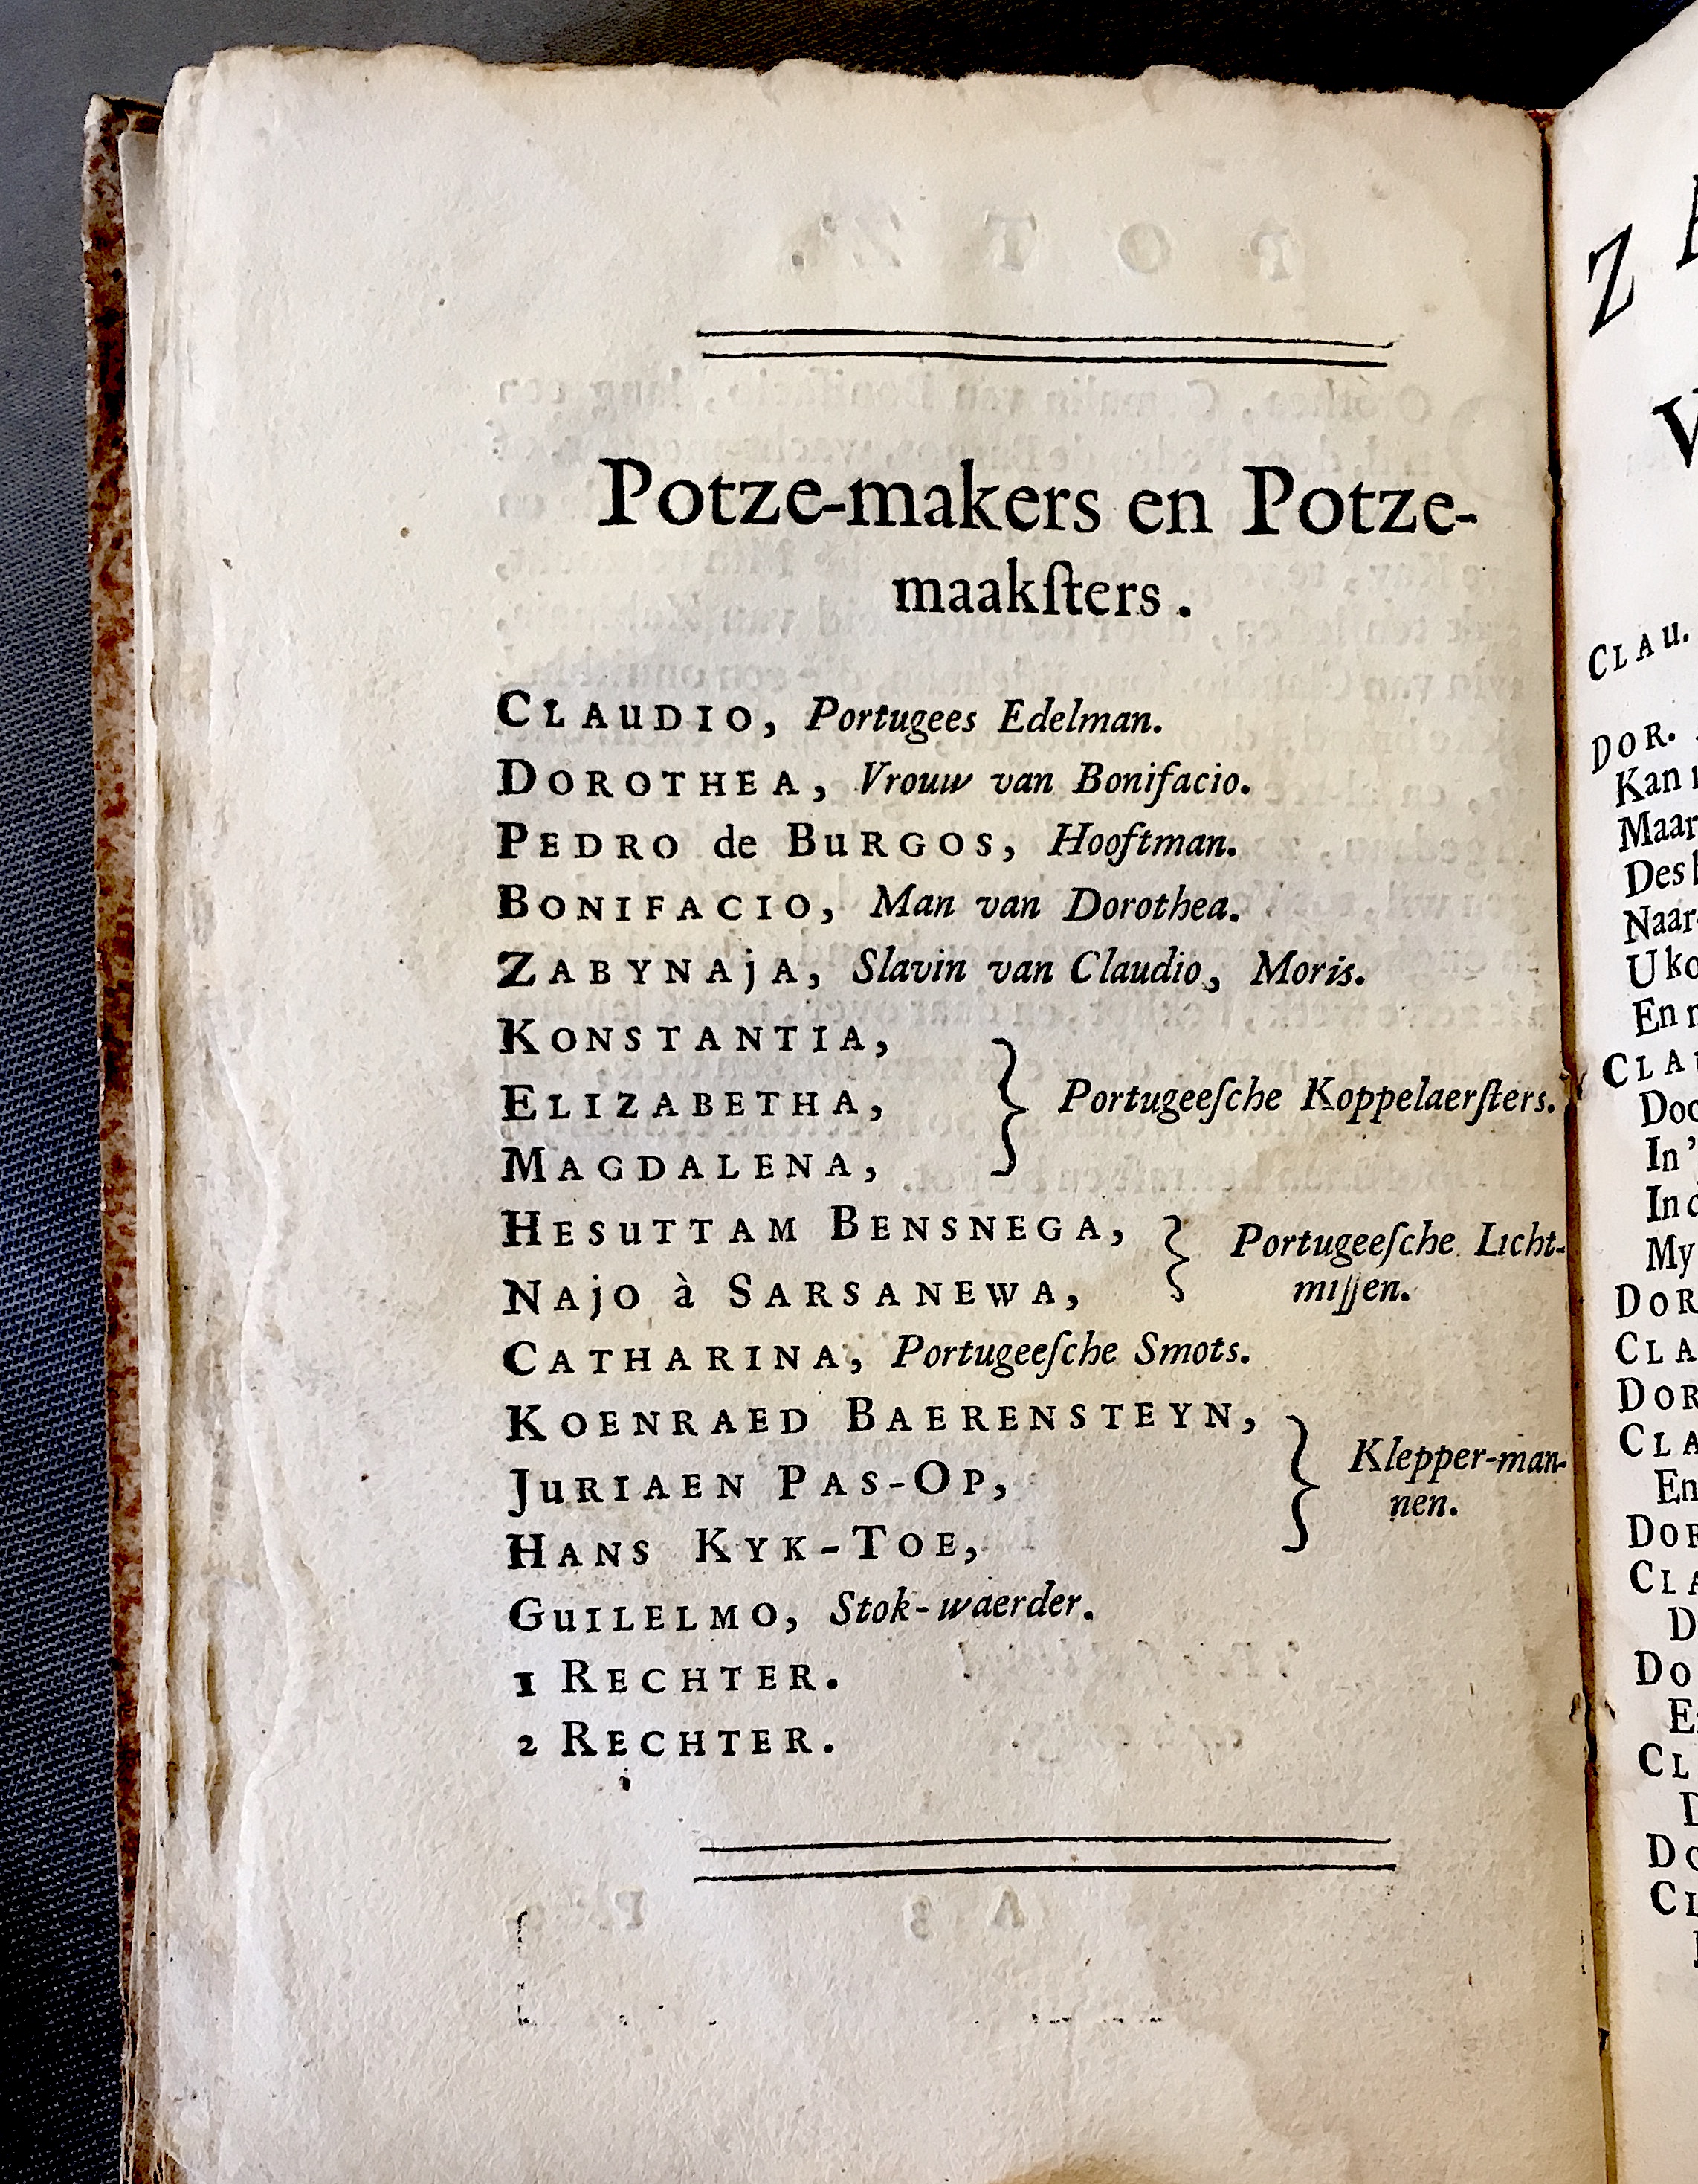 Potze-makers en Potze-
maakſters.
CLAuDIO, Portugees Edelman.
DOROTHEA, Vrouw van Bonifacio.
PEDRO de BuRGOS, Hooftman.
BONIFACIO, Man van Dorothea.
ZABYNAjA, Slavin van Claudio, Moris.
KONSTANTIA,
ELIZABETHA,
MAGDALENA,
Portugeeſche Koppelaerſters.
HESuTTAM BENSNEGA,
NAjO à SARSANEWA,
Portugeeſche Licht-
miſſen.
CATHARINA, Portugeeſche Smots.
KOENRAED BAERENSTEYN,
JuRIAEN PAS-OP,
HANS KYK-TOE,
Klepper-man-
nen.
GuILELMO, Stok-waerder.
1 RECHTER.
2 RECHTER.
Z
V
CLAu.
DOR.
Kan
Maar
Des
Naar
U ko
En
CLAu
Doo
In '
In
My
DOR
CLA
DOR
CLA
En
DOR
CLA
D
DO
E
CL
D
DO
CL